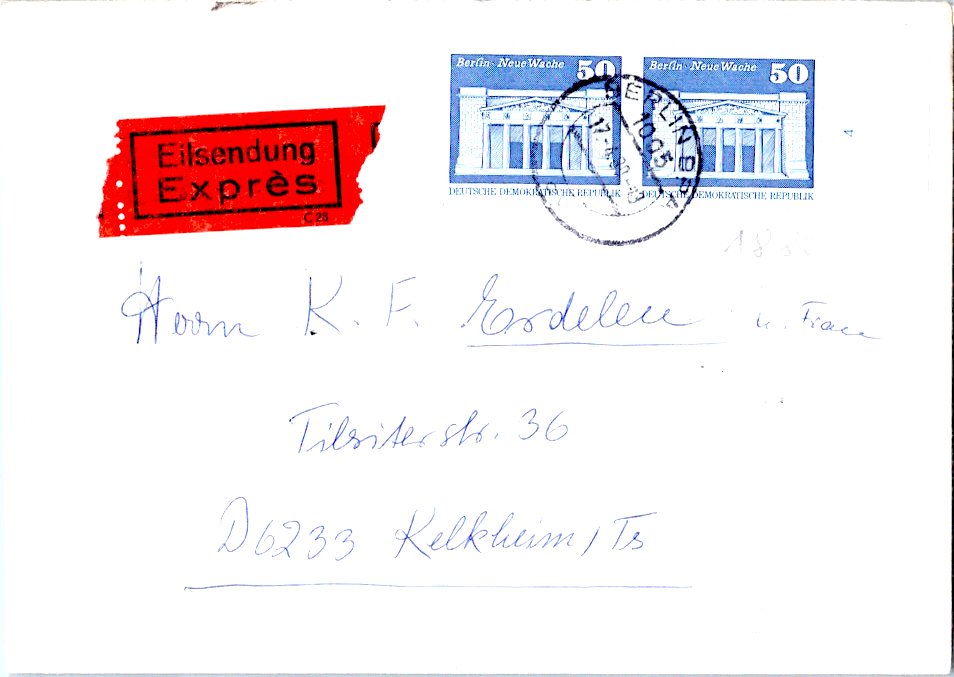 Berlin · Neue Wache 50
DEUTSCHE DEMOKRATISCHE REPUBLIK
Berlin · Neue Wache 50
DEUTSCHE DEMOKRATISCHE REPUBLIK
BERLIN
1005
4
Eilsendung
Exprès
C 28
Herrn K. F. Erdelen u. Frau
Tilsiterstr. 36
D6233 Kelkheim/Ts